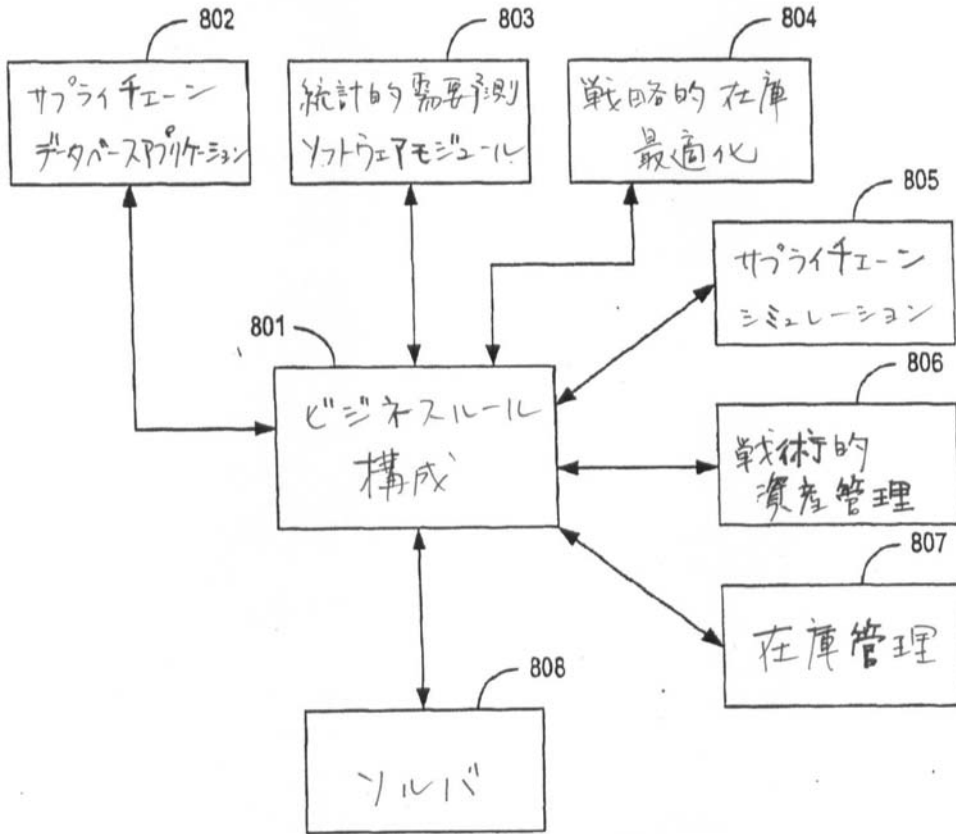 802
サプライチェーン
データベースアプリケーション
803
統計的需要予測
ソフトウェアモジュール
804
戦略的在庫
最適化
805
サプライチェーン
シミュレーション
801
ビジネスルール
構成
806
戦術的
資産管理
807
在庫管理
808
ソルバ